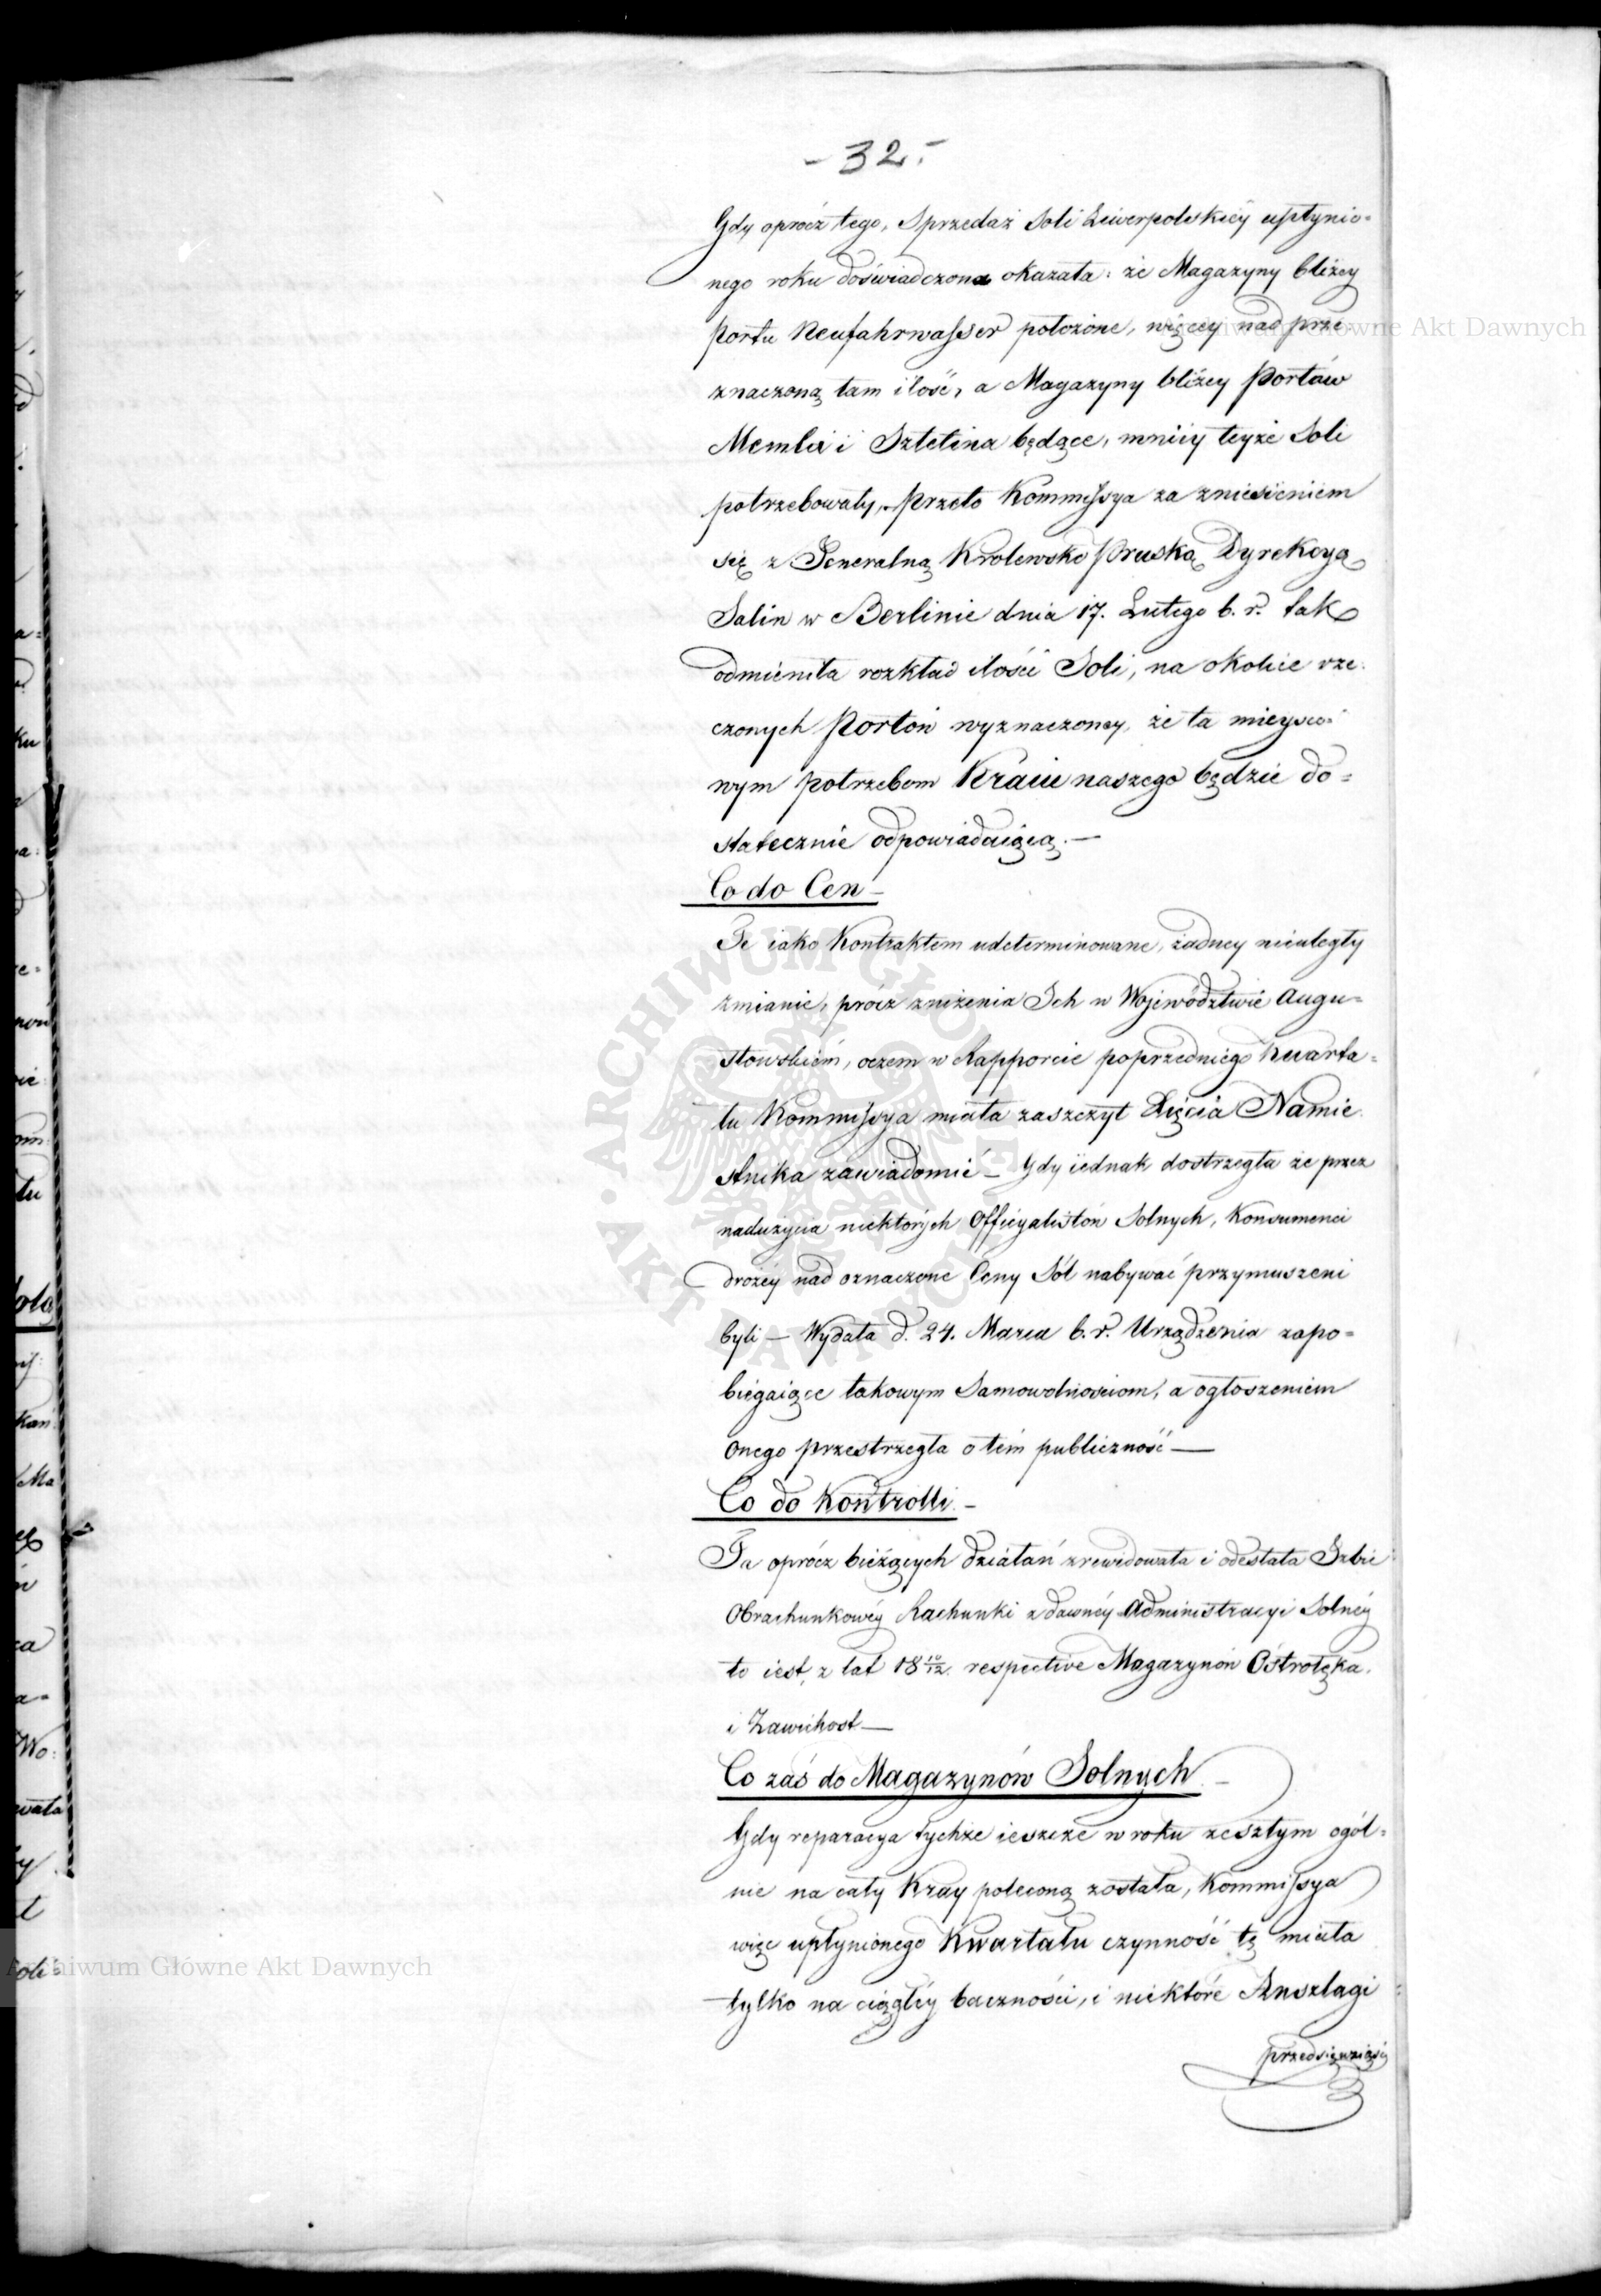 - 32 -
Gdy oprócz tego, Sprzedaż Soli Liwerpolskiey upłynio=
nego roku doświadczona okazała: że Magazyny bliżey
Portu Neufahrwasser położone, więcey nad prze-
znaczoną tam ilość, a Magazyny bliżey Portów
Memla i Sztetina będące, mniéy teyże Soli
potrzebowały, przeto Kommissya za zniesieniem
się z Generalną Krolewsko Pruską Dyrekcyą
Salin w Berlinie dnia 17. Lutego b. r. tak
odmieniła rozkład ilości Soli, na okolice rze-
czonych Portów wyznaczoney, że ta mieysco-
wym potrzebom Kraiu naszego będzie do=
statecznie odpowiadaiącą. —
Co do Cen —
Te iako Kontraktem udeterminowane, żadney nieuległy
zmianie, prócz zniżenia Ich w Województwie Augu=
stowskiém, oczem w Rapporcie poprzedniego Kwarta=
łu Kommissya miała zaszczyt Xięcia Namie-
stnika zawiadomić — Gdy iednak dostrzegła że przez
nadużycia niektórych Officyalistów Solnych, Konsumenci
drożéy nad oznaczone Ceny Sól nabywać przymuszeni
byli — Wydała d. 24. Marca b. r. Urządzenia zapo=
biegaiące takowym Samowolnościom, a ogłoszeniem
onego przestrzegła o tém publiczność —
Co do Kontrolli. —
Ta oprócz bieżących działań zrewidowała i odesłała Izbie
Obrachunkowéy Rachunki z dawnéy Administracyi Solnéy
to iest, z lat 18 10/12 respective Magazynów Ostrołęka
i Zawichost —
Co zaś do Magazynów Solnych. —
Gdy reparacya tychże ieszcze w roku zeszłym ogól=
nie na cały Kray poleconą została, Kommissya
więc upłynionego Kwartału czynność tę miała
tylko na ciągłéy baczności, i niektóre Anszlagi
przedsięwzięć
Archiwum Główne Akt Dawnych
Archiwum Główne Akt Dawnych
ARCHIWUM GŁÓWNE AKT DAWNYCH